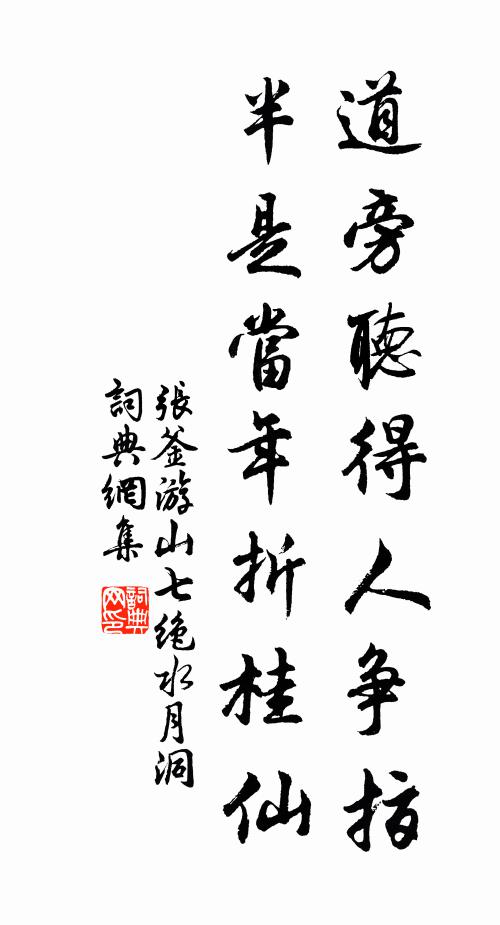 道旁聽得人争指
半是當年折桂仙
張釜游山七绝水月洞
詞典網集
詞典
网印